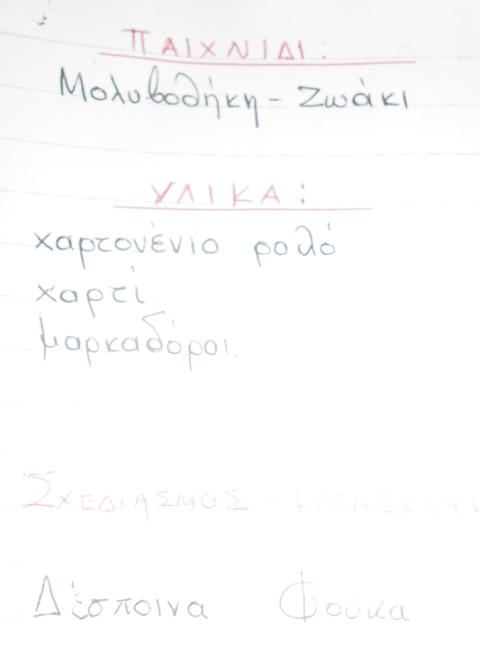 ΠΑΙΧΝΙΔΙ:
Μολυβοθήκη - Ζωάκι
ΥΛΙΚΑ:
χαρτονένιο ρολό
χαρτί
μαρκαδόροι.
ΣΧΕΔΙΑΣΜΟΣ - ΚΑΤΑΣΚΕΥΗ
Δέσποινα Φούκα